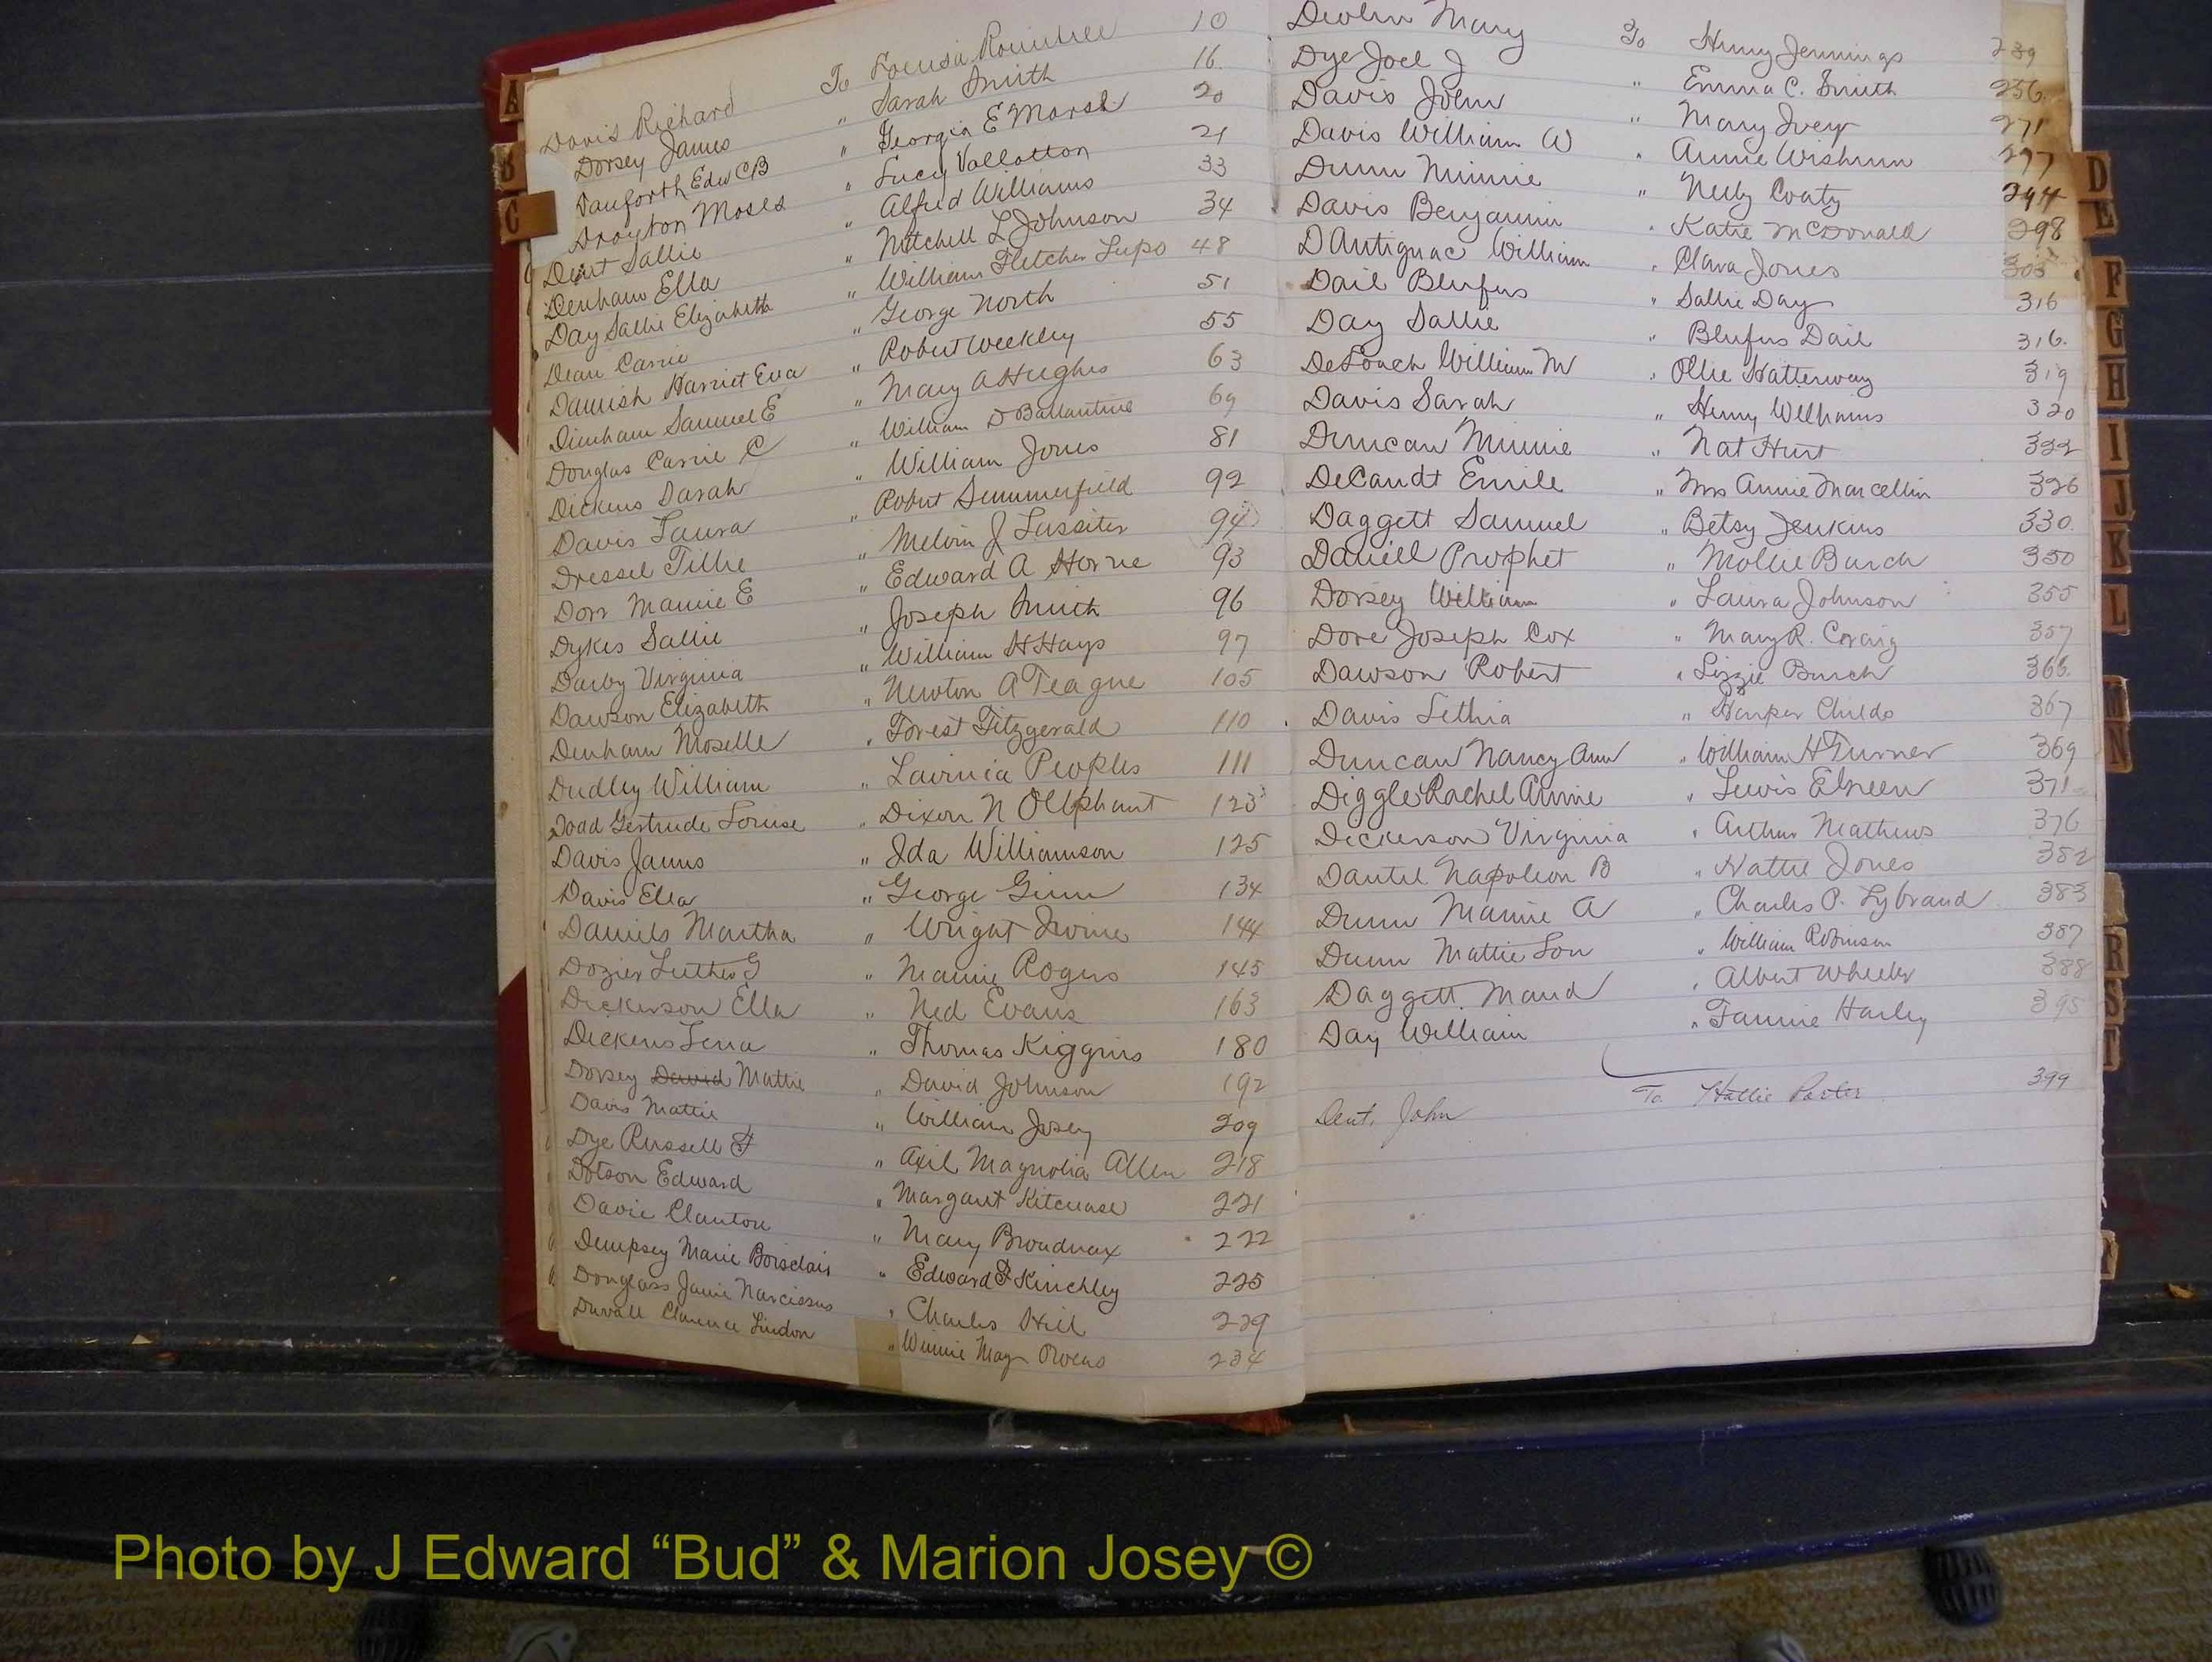 Davis Richard To Louisa Rountree 10
Dorsey James " Sarah Smith 16
Danforth Edw CB " Georgia E Marsh 20
Drayton Moses " Lucy Vallotton 21
Dent Sallie " Alfred Williams 33
Denham Ella " Mitchell L Johnson 34
Day Sallie Elizabeth " William Fletcher Lupo 48
Dean Carrie " George North 51
Damish Harriet Eva " Robert Weekley 55
Dinham Samuel E " Mary A Hughes 63
Douglas Carrie C " William D Ballantine 69
Dickens Sarah " William Jones 81
Davis Laura " Robert Summerfield 92
Dressel Tillie " Melvin J Lassiter 94
Dorr Mamie E " Edward A Horne 93
Dykes Sallie " Joseph Smith 96
Darby Virginia " William H Hays 97
Dawson Elizabeth " Newton A Teague 105
Denham Moselle " Forest Fitzgerald 110
Dudley William " Lavinia Peoples 111
Doad Gertrude Louise " Dixon N Olliphant 123
Davis James " Ida Williamson 125
Davis Ella " George Ginn 134
Daniels Martha " Wright Irvine 144
Dozier Luther G " Mamie Rogers 145
Dickerson Ella " Ned Evans 163
Dickens Lena " Thomas Kiggins 180
Dorsey David Mattie " David Johnson 192
Davis Mattie " William Josey 209
Dye Russell " Axil Magnolia Allen 218
Dotson Edward " Margaret Kitchase 221
Davie Clanton " Mary Broadnax 222
Dempsey Marie Boisclair " Edward F Kinchley 225
Douglass Janie Narcissus " Charles Hill 229
Duvall Clarence Lindon " Winnie May Owens 234
Devlin Mary To Henry Jennings 239
Dye Joel J " Emma C. Smith 256
Davis John " Mary Ivey 271
Davis William W " Annie Wishum 277
Dunn Minnie " Neely Coaty 294
Davis Benjamin " Katie McDonald 298
DAntignac William " Clara Jones 305
Dail Blufus " Sallie Day 316
Day Sallie " Blufus Dail 316.
DeLoach William M " Ollie Hatterway 319
Davis Sarah " Henry Williams 320
Duncan Minnie " Nat Hurt 322
DeCandt Emile " Mrs Annie Marcellin 326
Daggett Samuel " Betsy Jenkins 330.
Daniell Prophet " Mollie Burch 350
Dorsey William " Laura Johnson 355
Dore Joseph Cox " Mary R. Craig 357
Dawson Robert " Lizzie Burch 363.
Davis Lethia " Harper Childs 367
Duncan Nancy Ann " William H Turner 369
Diggle Rachel Annie " Lewis E Green 371
Dickerson Virginia " Arthur Mathews 376
Dantel Napoleon B " Hattie Jones 382
Dunn Mamie A " Charles P. Lybrand 383
Dunn Mattie Lou " William Robinson 387
Daggett Maud " Albert Wheeler 388
Day William " Fannie Harley 395
Dent, John To Hallie Porter 399
A
B
C
D
E
F
G
H
I
J
K
L
M
N
R
S
T
Photo by J Edward “Bud” & Marion Josey ©